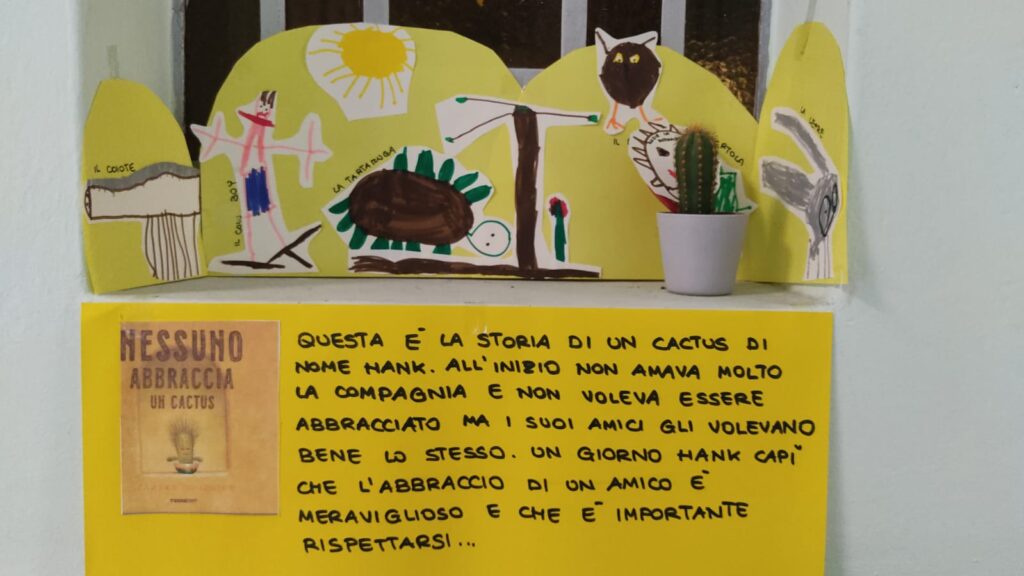 IL COIOTE
IL COW BOY
LA TARTARUGA
IL
RTOLA
LA LEPRE
NESSUNO
ABBRACCIA
UN CACTUS
QUESTA È LA STORIA DI UN CACTUS DI
NOME HANK. ALL'INIZIO NON AMAVA MOLTO
LA COMPAGNIA E NON VOLEVA ESSERE
ABBRACCIATO MA I SUOI AMICI GLI VOLEVANO
BENE LO STESSO. UN GIORNO HANK CAPÌ
CHE L'ABBRACCIO DI UN AMICO È
MERAVIGLIOSO E CHE È IMPORTANTE
RISPETTARSI...